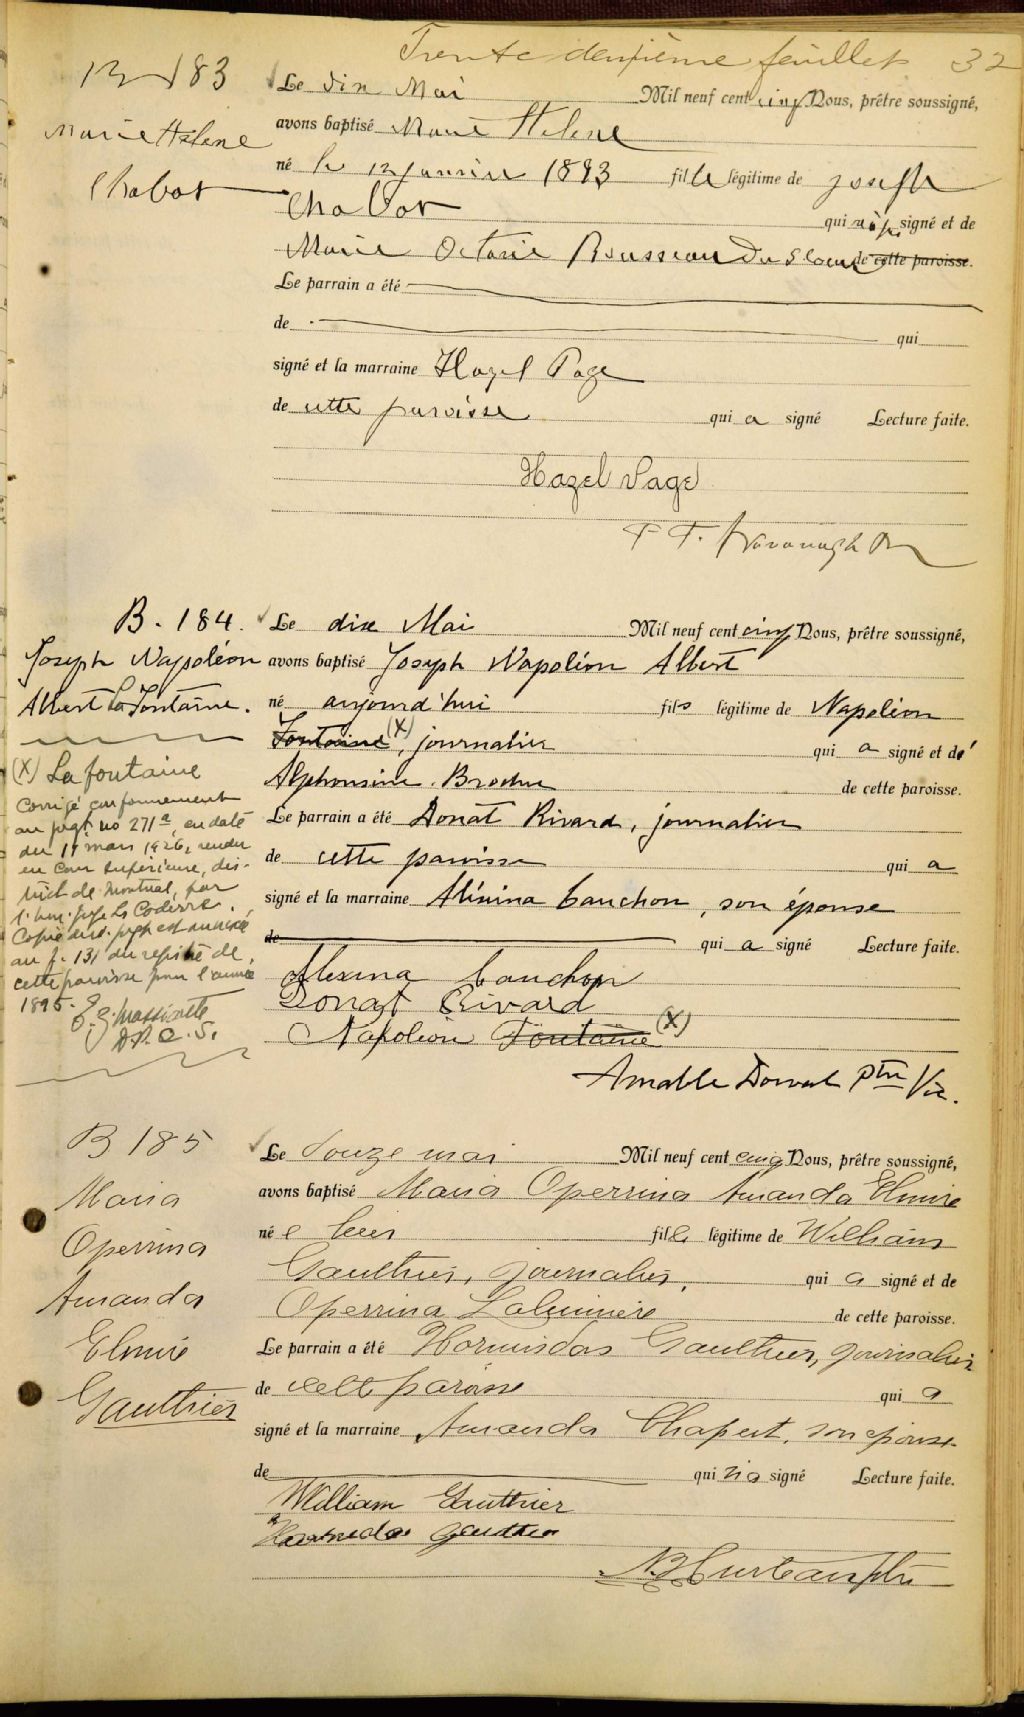 Trente deuxième feuillet 32
B 183
Marie Hélène
Chabot
Le dix Mai Mil neuf cent cinq Nous, prêtre soussigné,
avons baptisé Marie Hélène
né le 12 janvier 1893 fille légitime de Joseph
Chabot qui signé et de
Marie Octavie Rousseau de cette paroisse.
Le parrain a été
de qui
signé et la marraine Hazel Page
de cette paroisse qui a signé Lecture faite.
Hazel Page
Kavanagh
B. 184.
Joseph Napoléon
Albert LaFontaine.
(X) La fontaine
Corrigé conformément
au jugt no 271a, en date
du 17 mars 1926, rendu
en Cour Supérieure, dis-
trict de Montréal, par
l'hon. juge Ls Coderre.
Copie dud. jugt est annexée
au f. 131 du registre de
cette paroisse pour l'année
1895.
E. Z. Massicotte
D.P.C.S.
Le dix Mai Mil neuf cent cinq Nous, prêtre soussigné,
avons baptisé Joseph Napoléon Albert
né aujourd'hui fils légitime de Napoléon
Fontaine (X), journalier qui a signé et de
Alphonsine Brochu de cette paroisse.
Le parrain a été Donat Rivard, journalier
de cette paroisse qui a
signé et la marraine Aléxina Cauchon, son épouse
de qui a signé Lecture faite.
Alexina Cauchon
Donat Rivard
Napoleon Fontaine (X)
Amable Dorval ptre Vic.
B 185
Maria
Operrina
Amanda
Elmire
Gauthier
Le Douze mai Mil neuf cent cinq Nous, prêtre soussigné,
avons baptisé Maria Operrina Amanda Elmire
née hier fille légitime de William
Gauthier, journalier, qui a signé et de
Operrina de cette paroisse.
Le parrain a été Hormisdas Gauthier, journalier
de cette paroisse qui a
signé et la marraine Amanda Chaput, son épouse
de qui n'a signé Lecture faite.
William Gauthier
Hormidas Gauthier